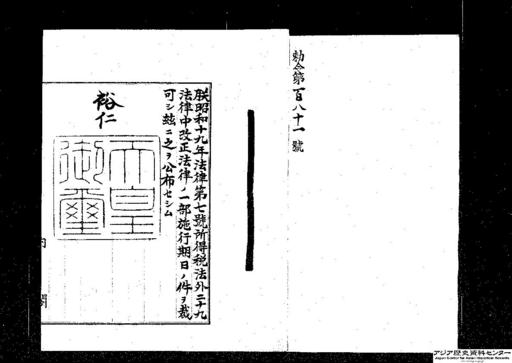 勅令第百八十一號
朕昭和十九年法律第七號所得税法外二十九
法律中改正法律ノ一部施行期日ノ件ヲ裁
可シ茲ニ之ヲ公布セシム
裕仁
天皇
御璽
内閣
アジア歴史資料センター
Japan Center for Asian Historical Records